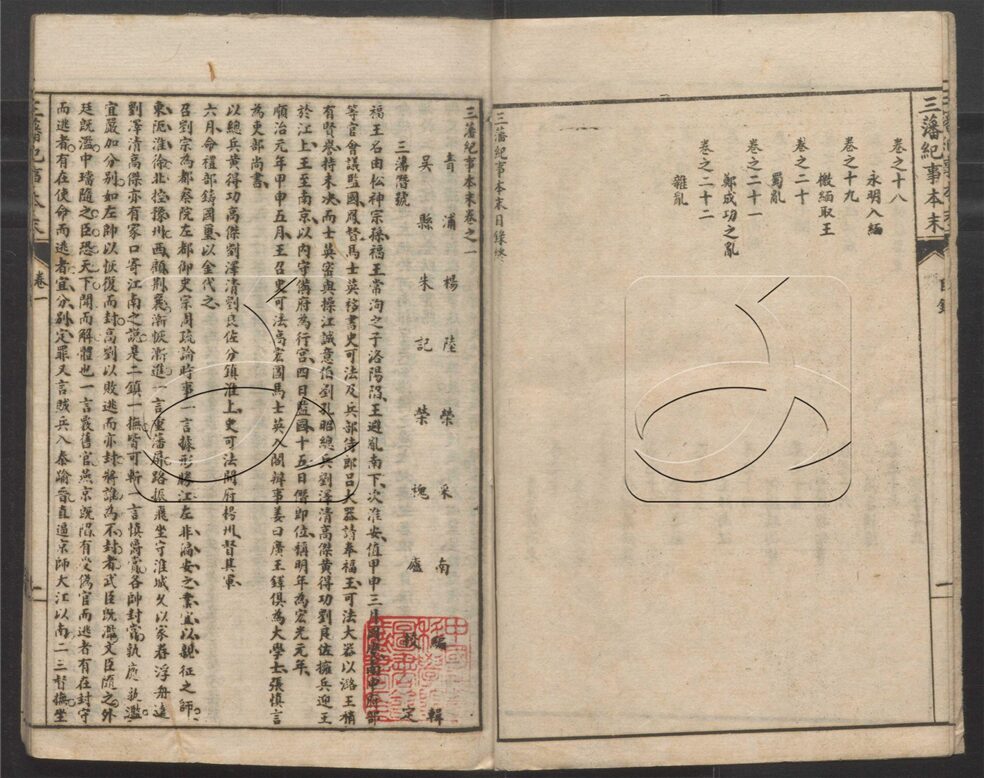 三藩紀事本末 目錄
卷之十八
永明入緬
卷之十九
檄緬取王
卷之二十
蜀亂
卷之二十一
鄭成功之亂
卷之二十二
雜亂
三藩紀事本末目錄終
三藩紀事本末卷之一
青浦 楊陸榮 采南 編輯
吳縣 朱記榮 槐廬 校定
三藩僭號
福王名由松神宗孫福王常洵之子洛陽陷王避亂南下次淮安值甲申三月
等官會議監國鳳督馬士英移書史可法及兵部侍郎呂大器請奉福王可法大器以潞王稍
有賢譽持未決而士英密與操江誠意伯劉孔昭總兵劉澤清高傑黃得功劉良佐擁兵迎王
於江上王至南京以內守備府為行宮四日監國十五日僭即位稱明年為宏光元年
順治元年甲申五月王召史可法高宏圖馬士英入閣辦事姜曰廣王鐸俱為大學士張慎言
為吏部尚書
以總兵黃得功高傑劉澤清劉良佐分鎮淮上史可法開府揚州督其軍
六月命禮部鑄國璽以金代之
召劉宗為都察院左都御史宗周疏論時事一言據形勝江左非偏安之業宜以親征之師
東扼淮徐北控豫州西顧荊襄漸恢漸進一言重藩屏路振飛坐守淮城久以家眷浮舟遠
劉澤清高傑亦有家口寄江南之說是二鎮一撫皆可斬一言慎爵賞各帥封賞孰應孰濫
宜嚴加分別如左帥以恢復而封高劉以敗逃而亦封將誰為不封者武臣既濫文臣隨之外
廷既濫中璫隨之臣恐天下聞而解體也一言覈舊官燕京既陷有受偽官而逃者有在封守
而逃者有在使命而逃者宜分別定罪又言賊兵入秦踰晉直逼京師大江以南二三督撫坐
三藩紀事本末 卷一 一